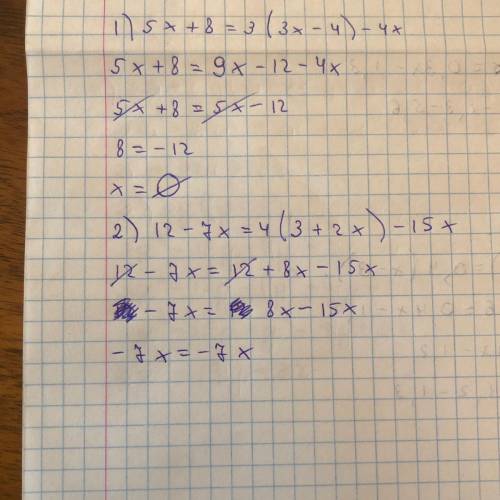 1) 5x + 8 = 3(3x - 4) - 4x
5x + 8 = 9x - 12 - 4x
5x + 8 = 5x - 12
8 = -12
x = ∅
2) 12 - 7x = 4(3 + 2x) - 15x
12 - 7x = 12 + 8x - 15x
- 7x = 8x - 15x
-7x = -7x